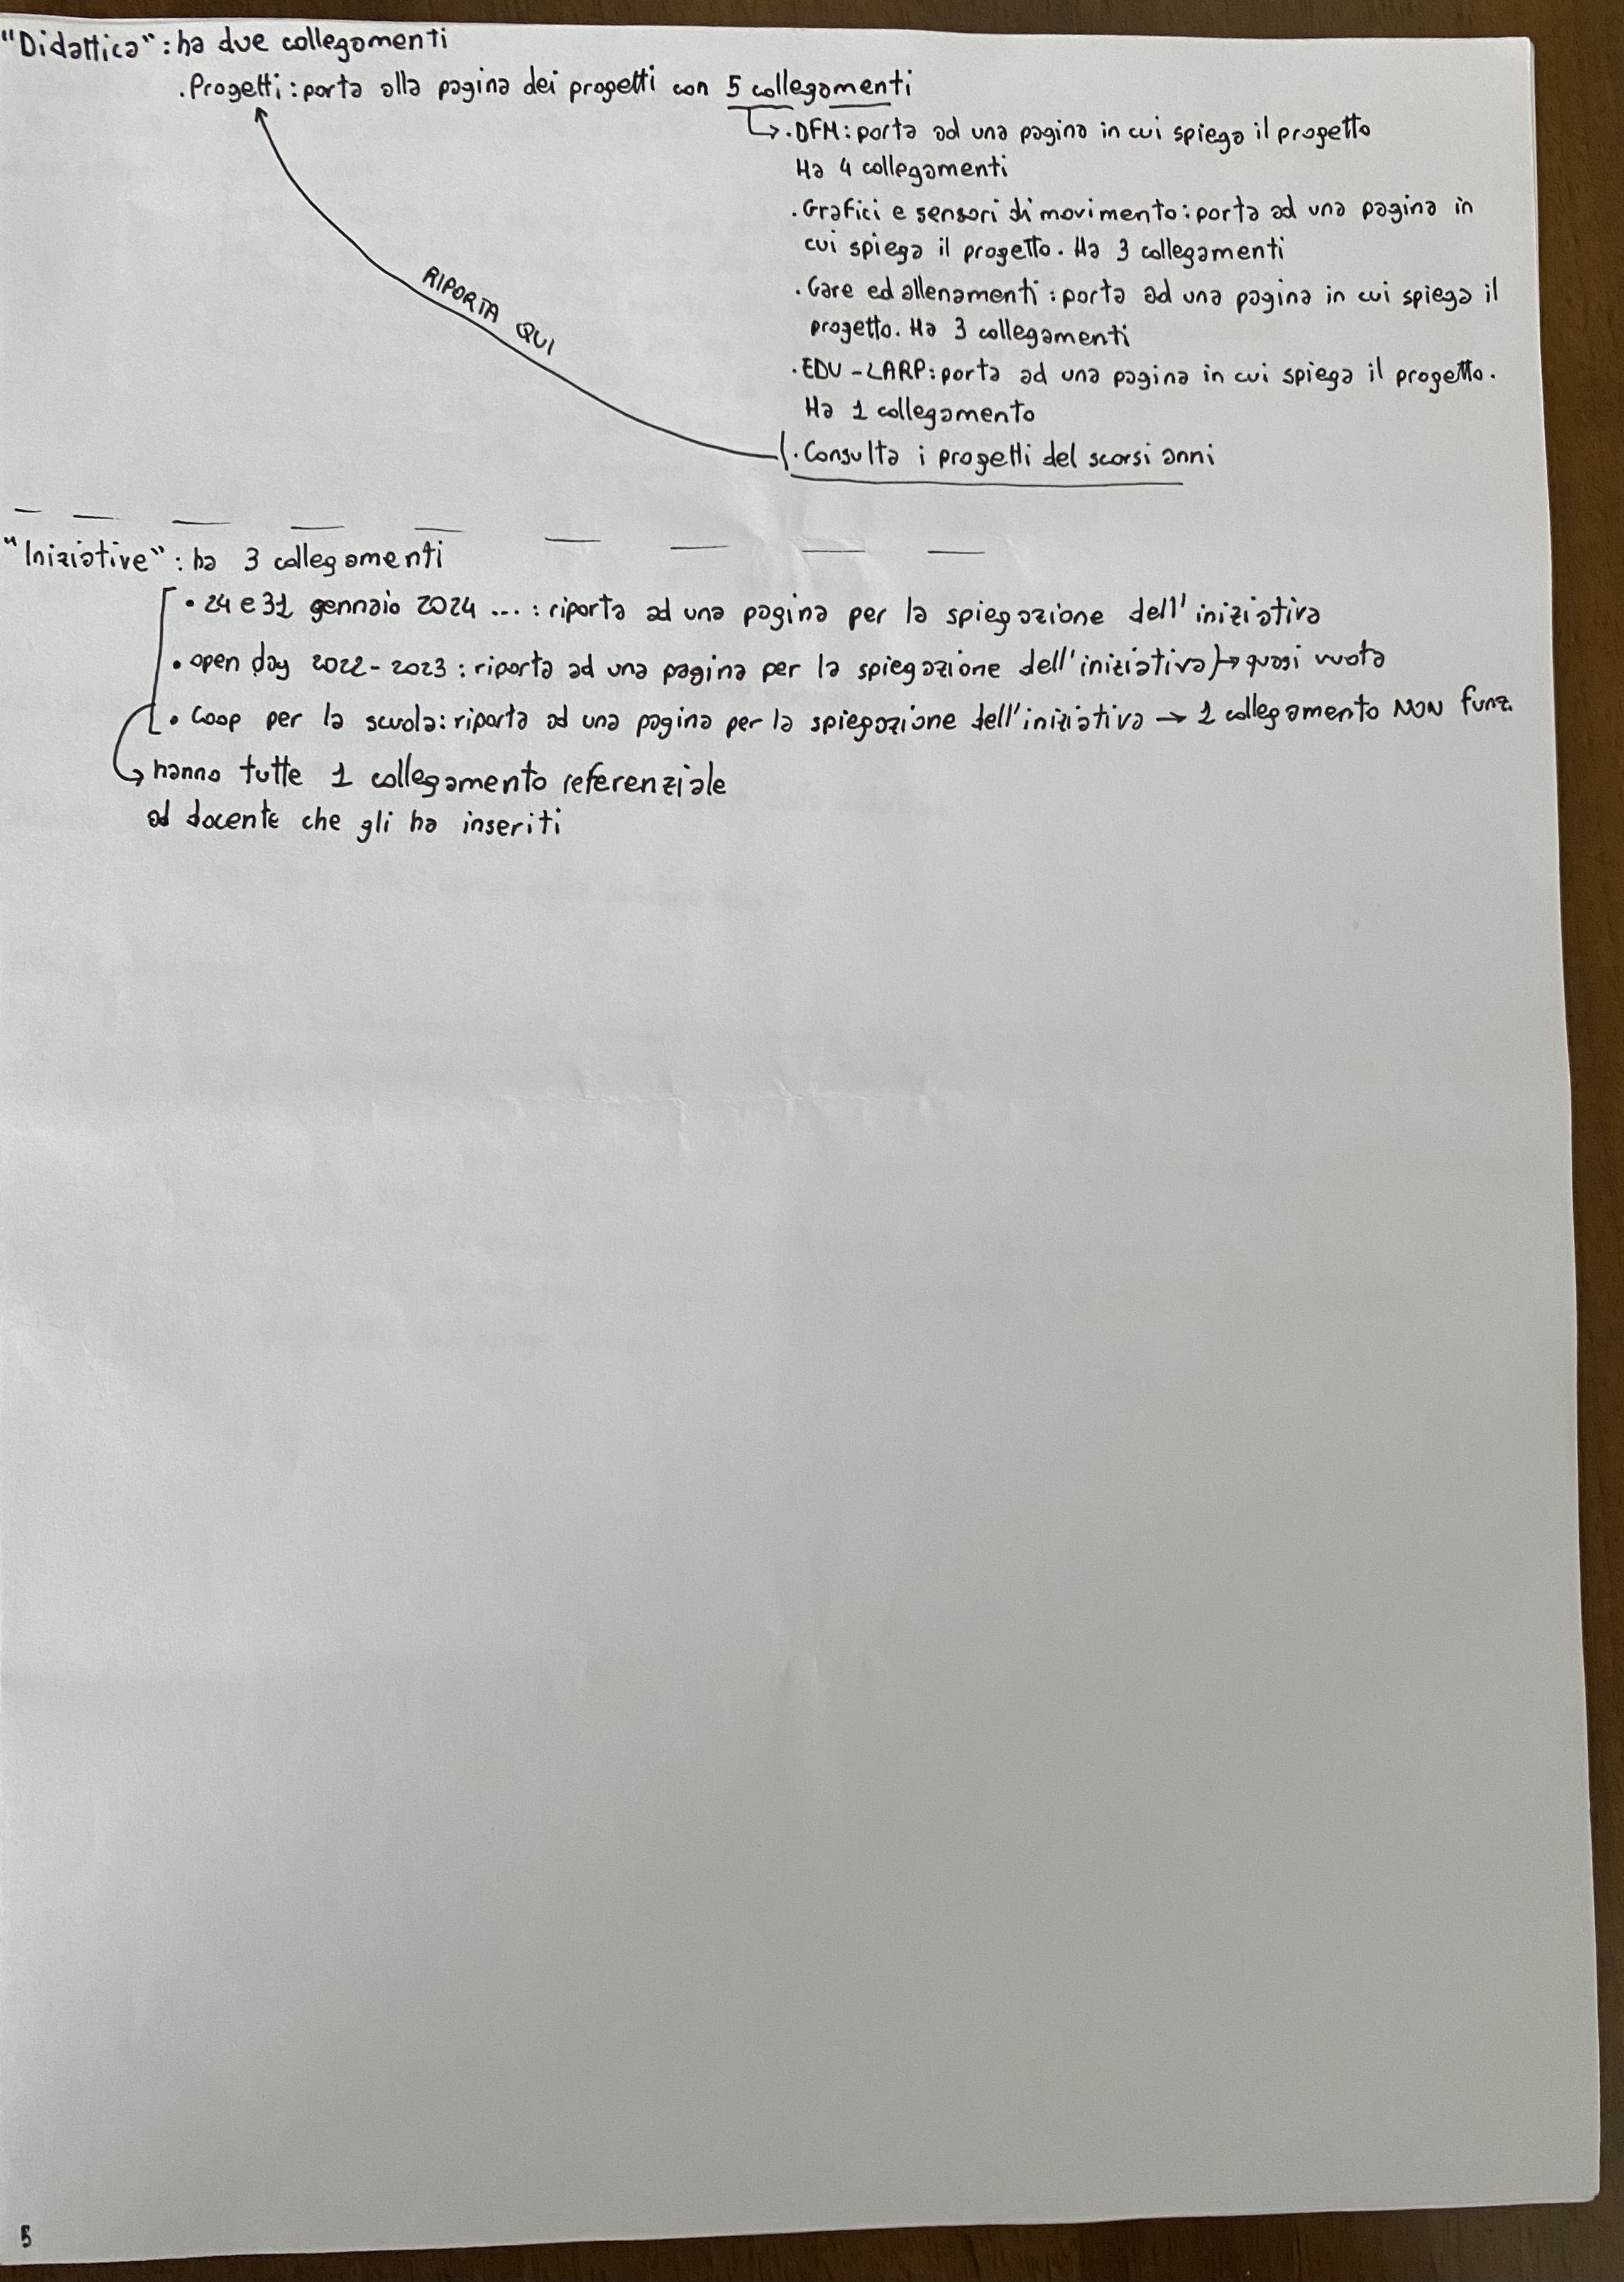 "Didattica": ha due collegamenti
.Progetti: porta alla pagina dei progetti con 5 collegamenti
.DFM: porta ad una pagina in cui spiega il progetto
Ha 4 collegamenti
.Grafici e sensori di movimento: porta ad una pagina in
cui spiega il progetto. Ha 3 collegamenti
.Gare ed allenamenti: porta ad una pagina in cui spiega il
progetto. Ha 3 collegamenti
.EDU-LARP: porta ad una pagina in cui spiega il progetto.
Ha 1 collegamento
.Consulta i progetti del scorsi anni
RIPORTA QUI
"Iniziative": ha 3 collegamenti
• 24 e 31 gennaio 2024 ...: riporta ad una pagina per la spiegazione dell'iniziativa
• open day 2022-2023: riporta ad una pagina per la spiegazione dell'iniziativa → quasi vuota
• Coop per la scuola: riporta ad una pagina per la spiegazione dell'iniziativa → 1 collegamento NON funz.
hanno tutte 1 collegamento referenziale
ad docente che gli ha inseriti
5